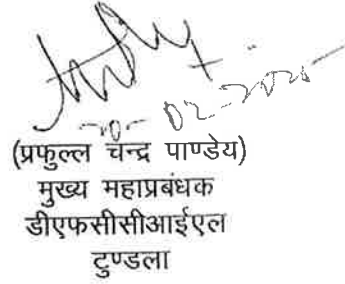 02-2025
(प्रफुल्ल चन्द्र पाण्डेय)
मुख्य महाप्रबंधक
डीएफसीसीआईएल
टुण्डला